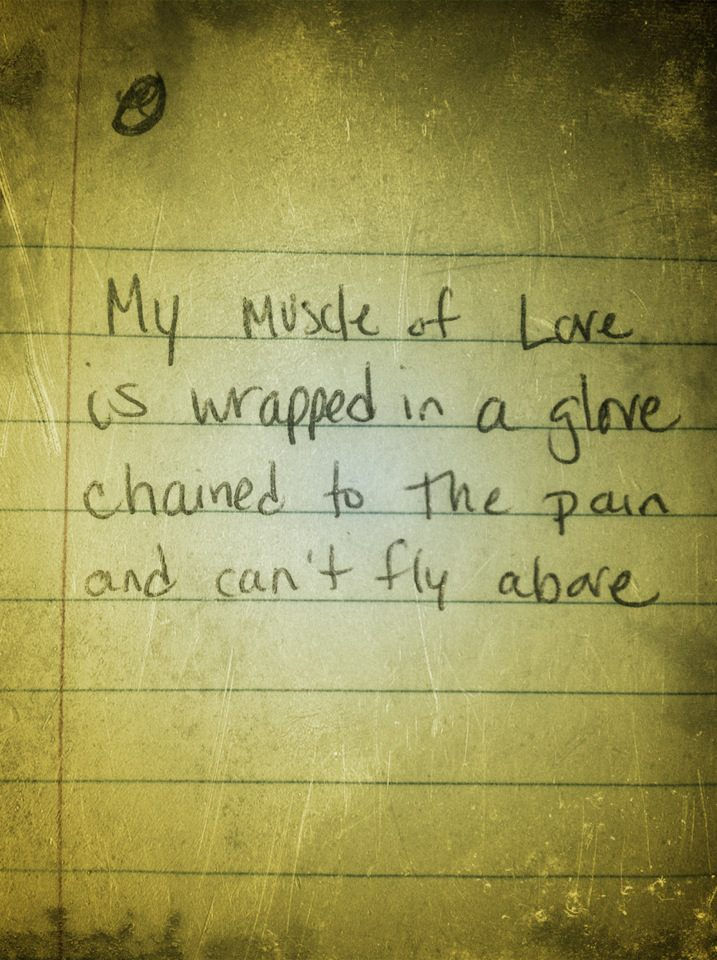 My Muscle of Love
is wrapped in a glove
chained to the pain
and can't fly above